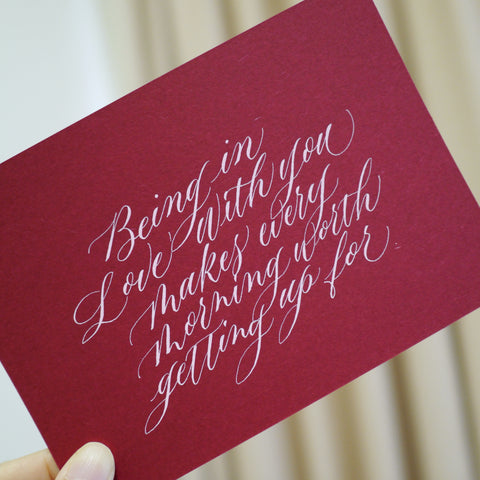 Being in
Love with you
makes every
morning worth
getting up for